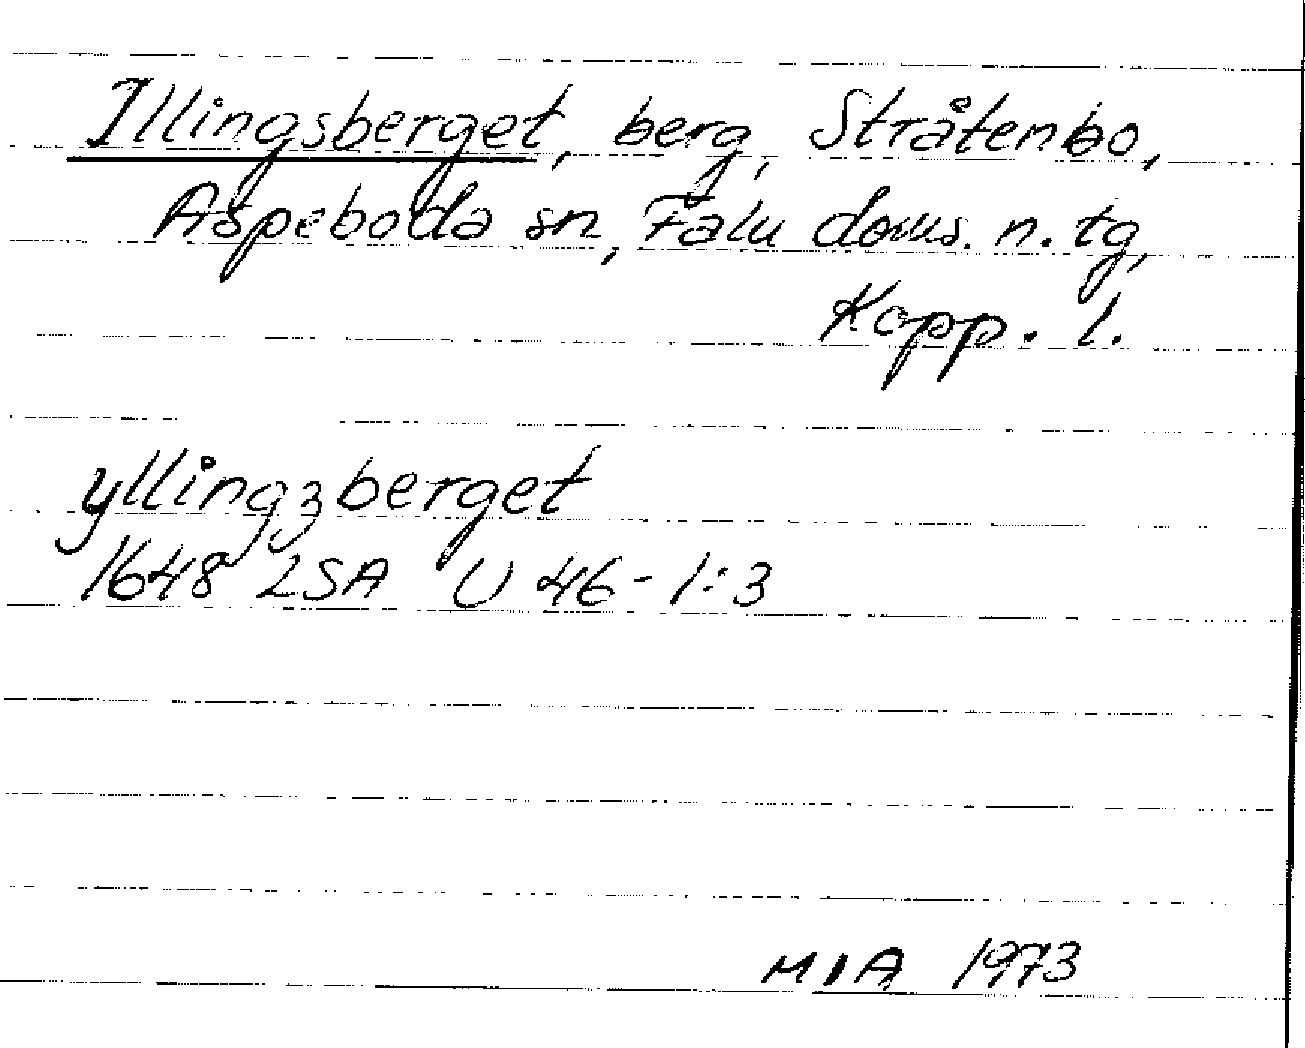 Illingsberget, berg, Stråtenbo,
Aspeboda sn, Falu doms. n. tg,
Kopp. l.
yllingzberget
1648 LSA U 46-1:3
MIA 1973